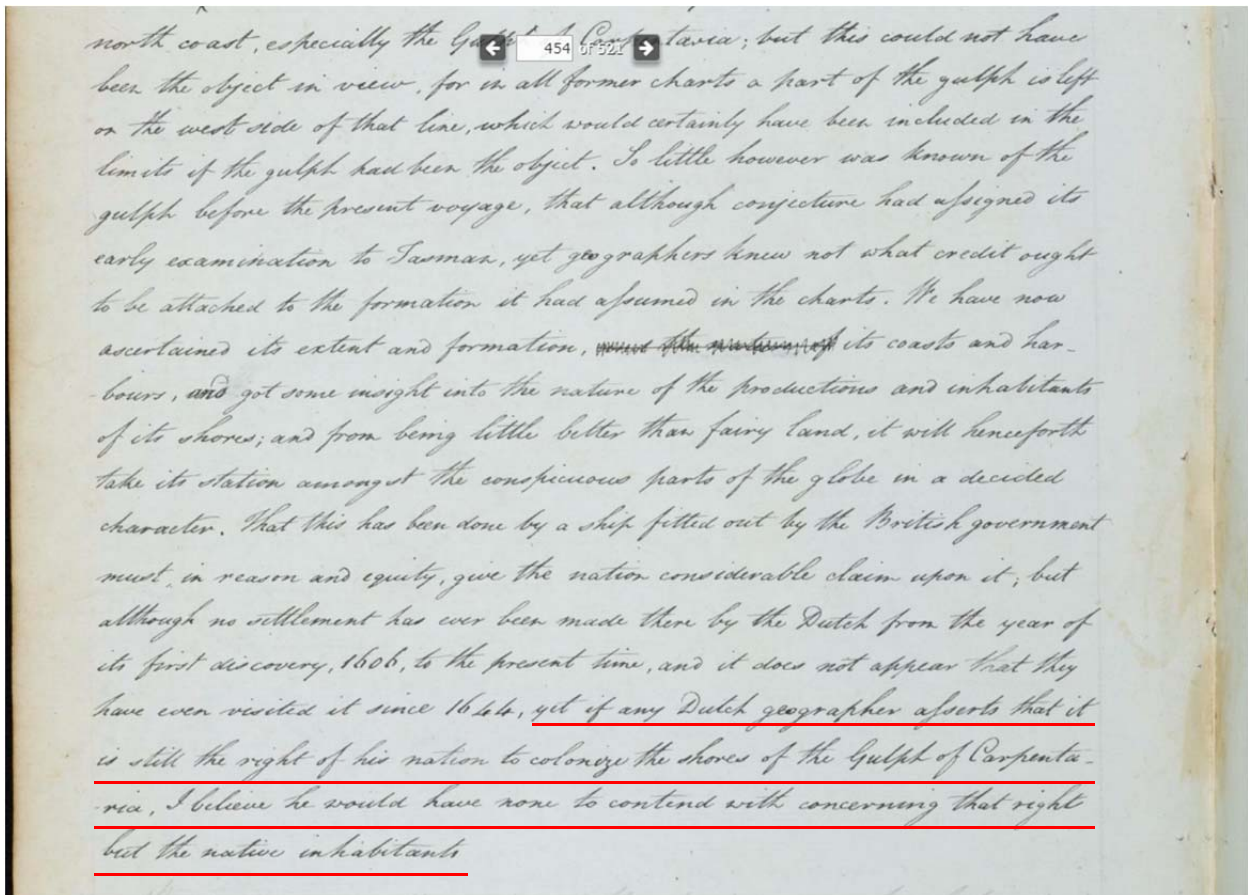 north coast, especially the Gulph of Carpentaria; but this could not have
454 of 521
been the object in view, for in all former charts a part of the gulph is left
on the west side of that line, which would certainly have been included in the
limits if the gulph had been the object. So little however was known of the
gulph before the present voyage, that although conjecture had assigned its
early examination to Tasman, yet geographers knew not what credit ought
to be attached to the formation it had assumed in the charts. We have now
ascertained its extent and formation, its coasts and har-
-bours, and got some insight into the nature of the productions and inhabitants
of its shores; and from being little better than fairy land, it will henceforth
take its station amongst the conspicuous parts of the globe in a decided
character. That this has been done by a ship fitted out by the British government
must, in reason and equity, give the nation considerable claim upon it; but
although no settlement has ever been made there by the Dutch from the year of
its first discovery, 1606, to the present time, and it does not appear that they
have even visited it since 1644, yet if any Dutch geographer asserts that it
is still the right of his nation to colonize the shores of the Gulph of Carpenta-
-ria, I believe he would have none to contend with concerning that right
but the native inhabitants